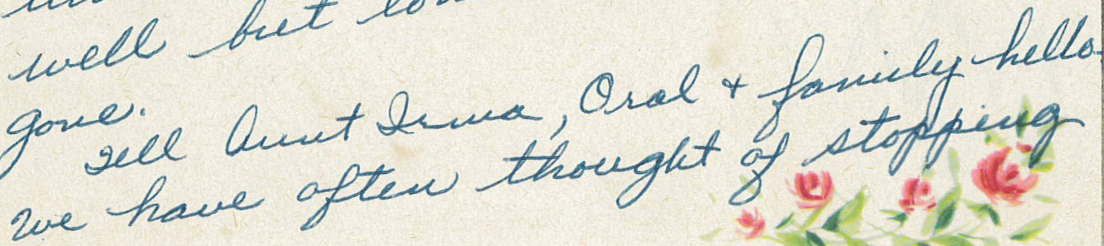 well but
gone.
Tell Aunt Irma, Oral + family hello.
We have often thought of stopping